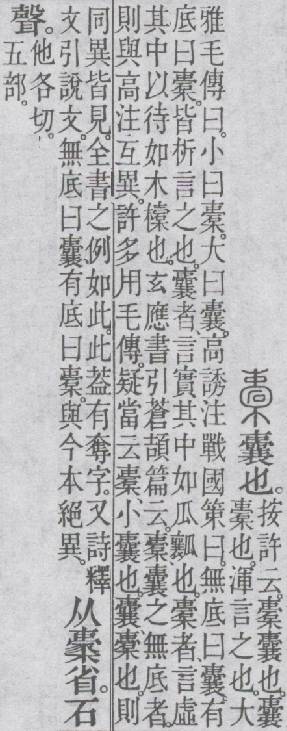 囊也。
按許云。橐囊也。囊
橐也。渾言之也。大
雅毛傳曰。小曰橐。大曰囊。高誘注戰國策曰。無底曰囊。有
底曰橐。皆析言之也。囊者、言實其中如瓜瓤也。橐者、言虛
其中以待如木㯓也。玄應書引蒼頡篇云。橐、囊之無底者。
則與高注互異。許多用毛傳。疑當云橐、小囊也。囊、橐也。則
同異皆見。全書之例如此。此蓋有奪字。又詩釋
文引說文。無底曰囊。有底曰橐。與今本絕異。
从㯻省。石
聲。
他各切。
五部。